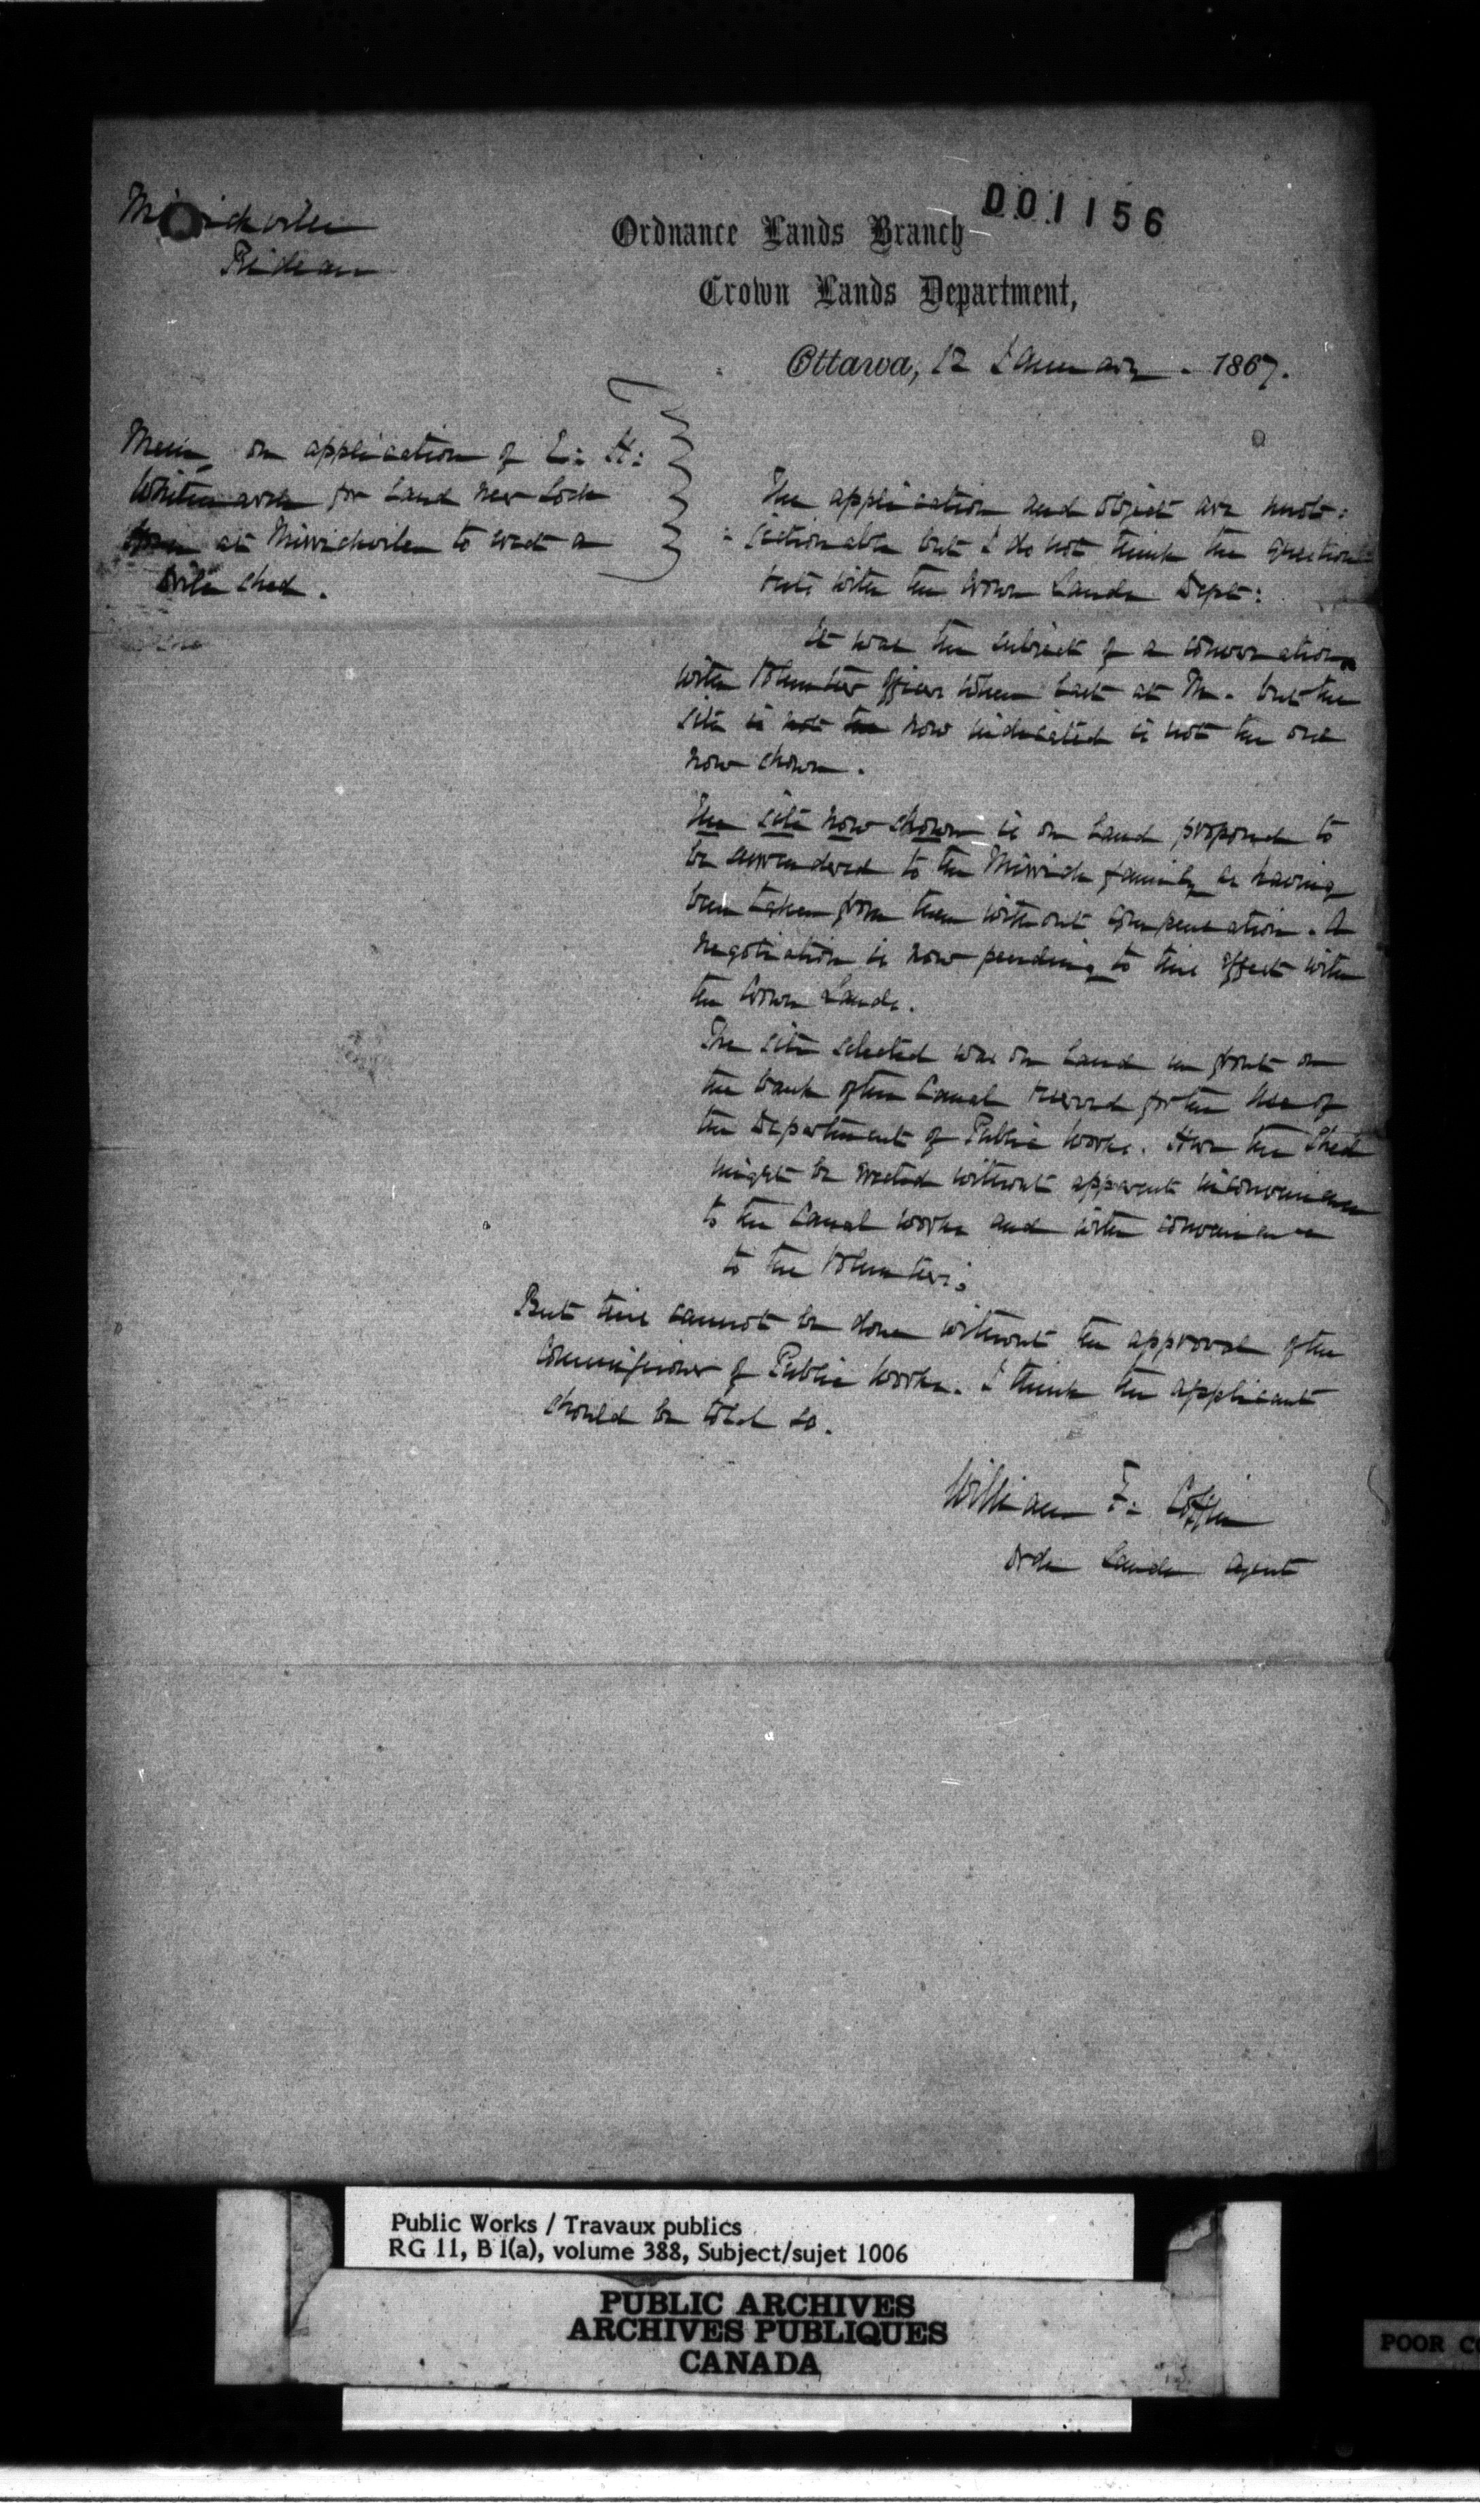 Merrickville
Rideau
001156
Ordnance Lands Branch
Crown Lands Department,
Ottawa, 12 January . 1867.
Mem on application of E: H:
Whitmarsh for Land near Lock
at Merrickville to erect a
Drill Shed.
The application and object are unob:
:jectionable but I do not think the question
rests with the Crown Lands Dept:
It was the subject of a conversation
with Volunteer Officers when last at M. but the
site is not the now indicated is not the one
now shown.
The site now shown is on Land proposed to
be surrendered to the Merrick family as having
been taken from them without compensation. A
negotiation is now pending to this effect with
the Crown Lands.
The site selected was on Land in front on
the bank of the Canal reserved for the use of
the Department of Public Works. Here the Shed
might be erected without apparent inconvenience
to the Canal works and with convenience
to the Volunteers.
But this cannot be done without the approval of the
Commissioner of Public Works. I think the applicant
should be told so.
William F: Coffin
Ord Lands Agent
Public Works / Travaux publics
RG 11, B 1(a), volume 388, Subject/sujet 1006
PUBLIC ARCHIVES
ARCHIVES PUBLIQUES
CANADA
POOR CO